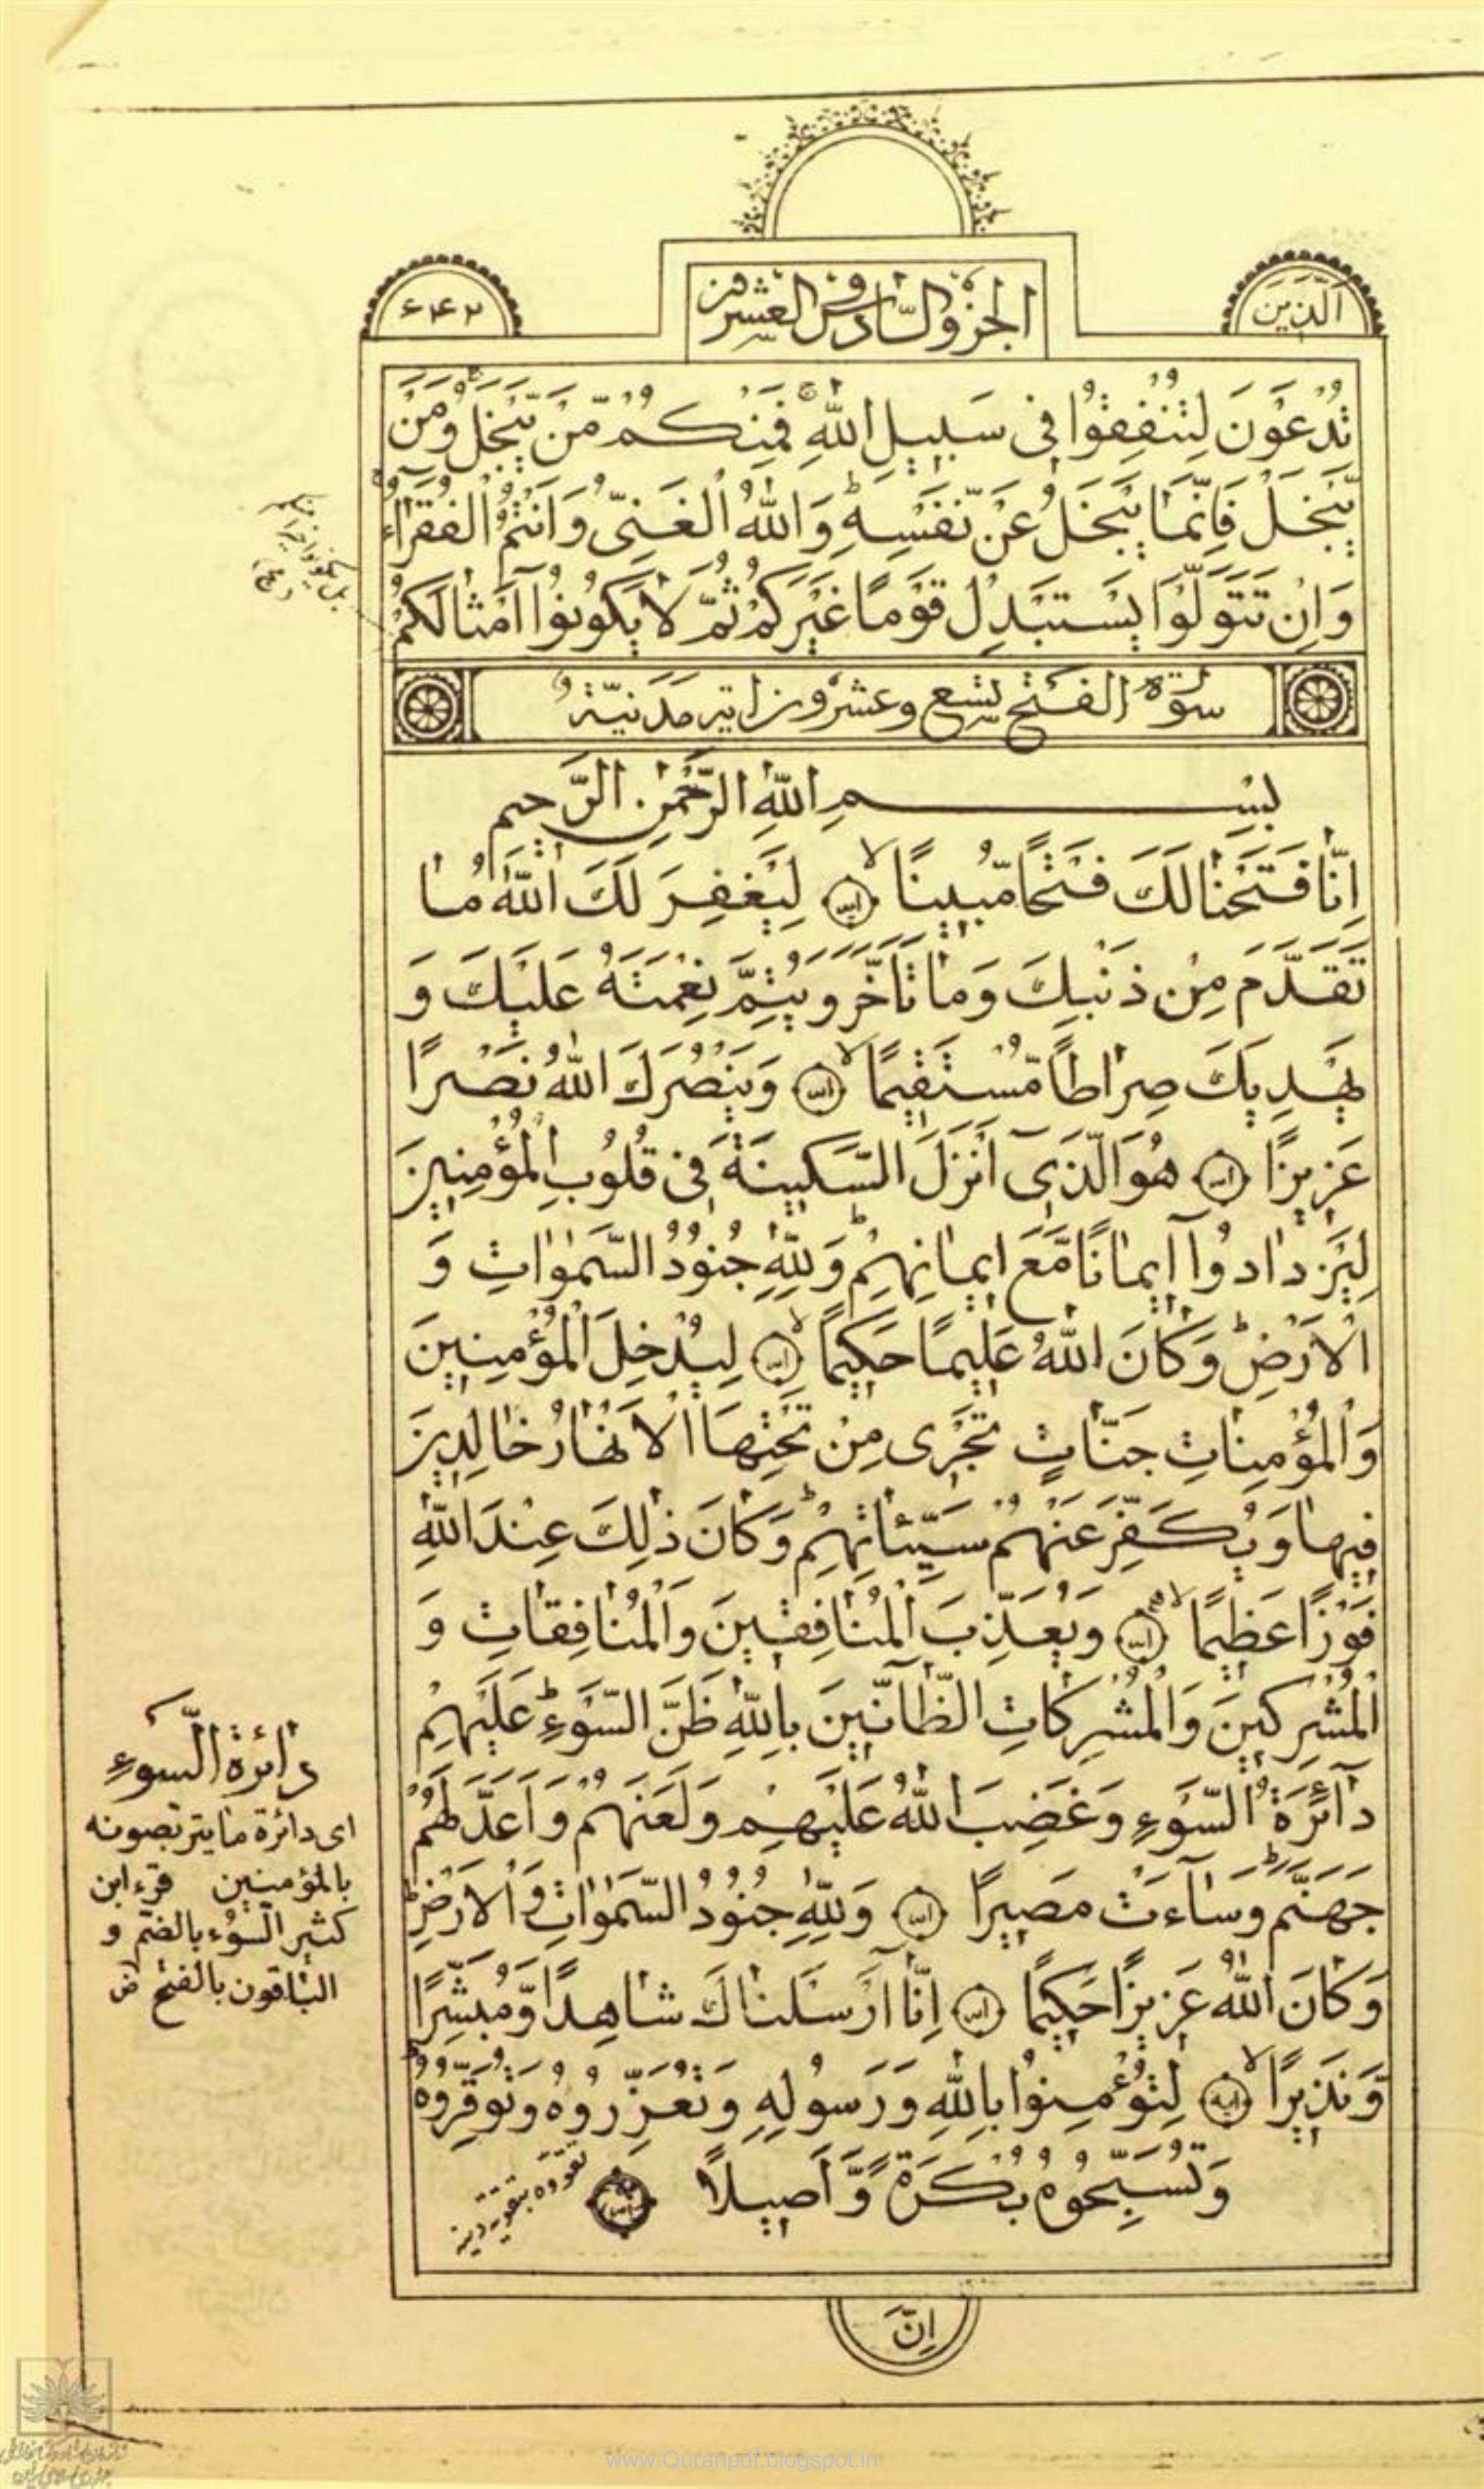 اَلَّذينَ
الجزو السّادس والعشرون
۶۴۲
تُدْعَوْنَ لِتُنْفِقُوا فِی سَبِیلِ اللّٰهِ فَمِنْكُمْ مَّنْ یَّبْخَلُ وَمَنْ
یَّبْخَلْ فَاِنَّمَا یَبْخَلُ عَنْ نَّفْسِهٖ وَاللّٰهُ الْغَنِیُّ وَاَنْتُمُ الْفُقَرَآءُ
وَاِنْ تَتَوَلَّوْا یَسْتَبْدِلْ قَوْمًا غَیْرَكُمْ ثُمَّ لَا یَكُونُوا اَمْثَالَكُمْ
سورة الفتح تسع وعشرون ایة مَدَنیّة
بِسْمِ اللّٰهِ الرَّحْمٰنِ الرَّحیمِ
اِنَّا فَتَحْنَا لَكَ فَتْحًا مُّبِینًا لِیَغْفِرَ لَكَ اللّٰهُ مَا
تَقَدَّمَ مِنْ ذَنْبِكَ وَمَا تَاَخَّرَ وَیُتِمَّ نِعْمَتَهُ عَلَیْكَ وَ
یَهْدِیَكَ صِرَاطًا مُّسْتَقِیمًا وَیَنْصُرَكَ اللّٰهُ نَصْرًا
عَزِیزًا هُوَ الَّذِی اَنْزَلَ السَّكِینَةَ فِی قُلُوبِ الْمُؤْمِنِینَ
لِیَزْدَادُوا اِیمَانًا مَّعَ اِیمَانِهِمْ وَلِلّٰهِ جُنُودُ السَّمٰوَاتِ وَ
الْاَرْضِ وَكَانَ اللّٰهُ عَلِیمًا حَكِیمًا لِیُدْخِلَ الْمُؤْمِنِینَ
وَالْمُؤْمِنَاتِ جَنَّاتٍ تَجْرِی مِنْ تَحْتِهَا الْاَنْهَارُ خَالِدِینَ
فِیهَا وَیُكَفِّرَ عَنْهُمْ سَیِّئَاتِهِمْ وَكَانَ ذٰلِكَ عِنْدَ اللّٰهِ
فَوْزًا عَظِیمًا وَیُعَذِّبَ الْمُنَافِقِینَ وَالْمُنَافِقَاتِ وَ
الْمُشْرِكِینَ وَالْمُشْرِكَاتِ الظَّانِّینَ بِاللّٰهِ ظَنَّ السَّوْءِ عَلَیْهِمْ
دَآئِرَةُ السَّوْءِ وَغَضِبَ اللّٰهُ عَلَیْهِمْ وَلَعَنَهُمْ وَاَعَدَّ لَهُمْ
جَهَنَّمَ وَسَآءَتْ مَصِیرًا وَلِلّٰهِ جُنُودُ السَّمٰوَاتِ وَالْاَرْضِ
وَكَانَ اللّٰهُ عَزِیزًا حَكِیمًا اِنَّا اَرْسَلْنَاكَ شَاهِدًا وَّمُبَشِّرًا
وَّنَذِیرًا لِتُؤْمِنُوا بِاللّٰهِ وَرَسُولِهِ وَتُعَزِّرُوهُ وَتُوَقِّرُوهُ
وَتُسَبِّحُوهُ بُكْرَةً وَّاَصِیلًا
اِنَّ
دائرة السّوءِ
ای دائرة ما یتربصونه
بالمؤمنین قرء ابن
كثیر السّوء بالضم و
الباقون بالفتح ض
www.Quranpdf.blogspot.in